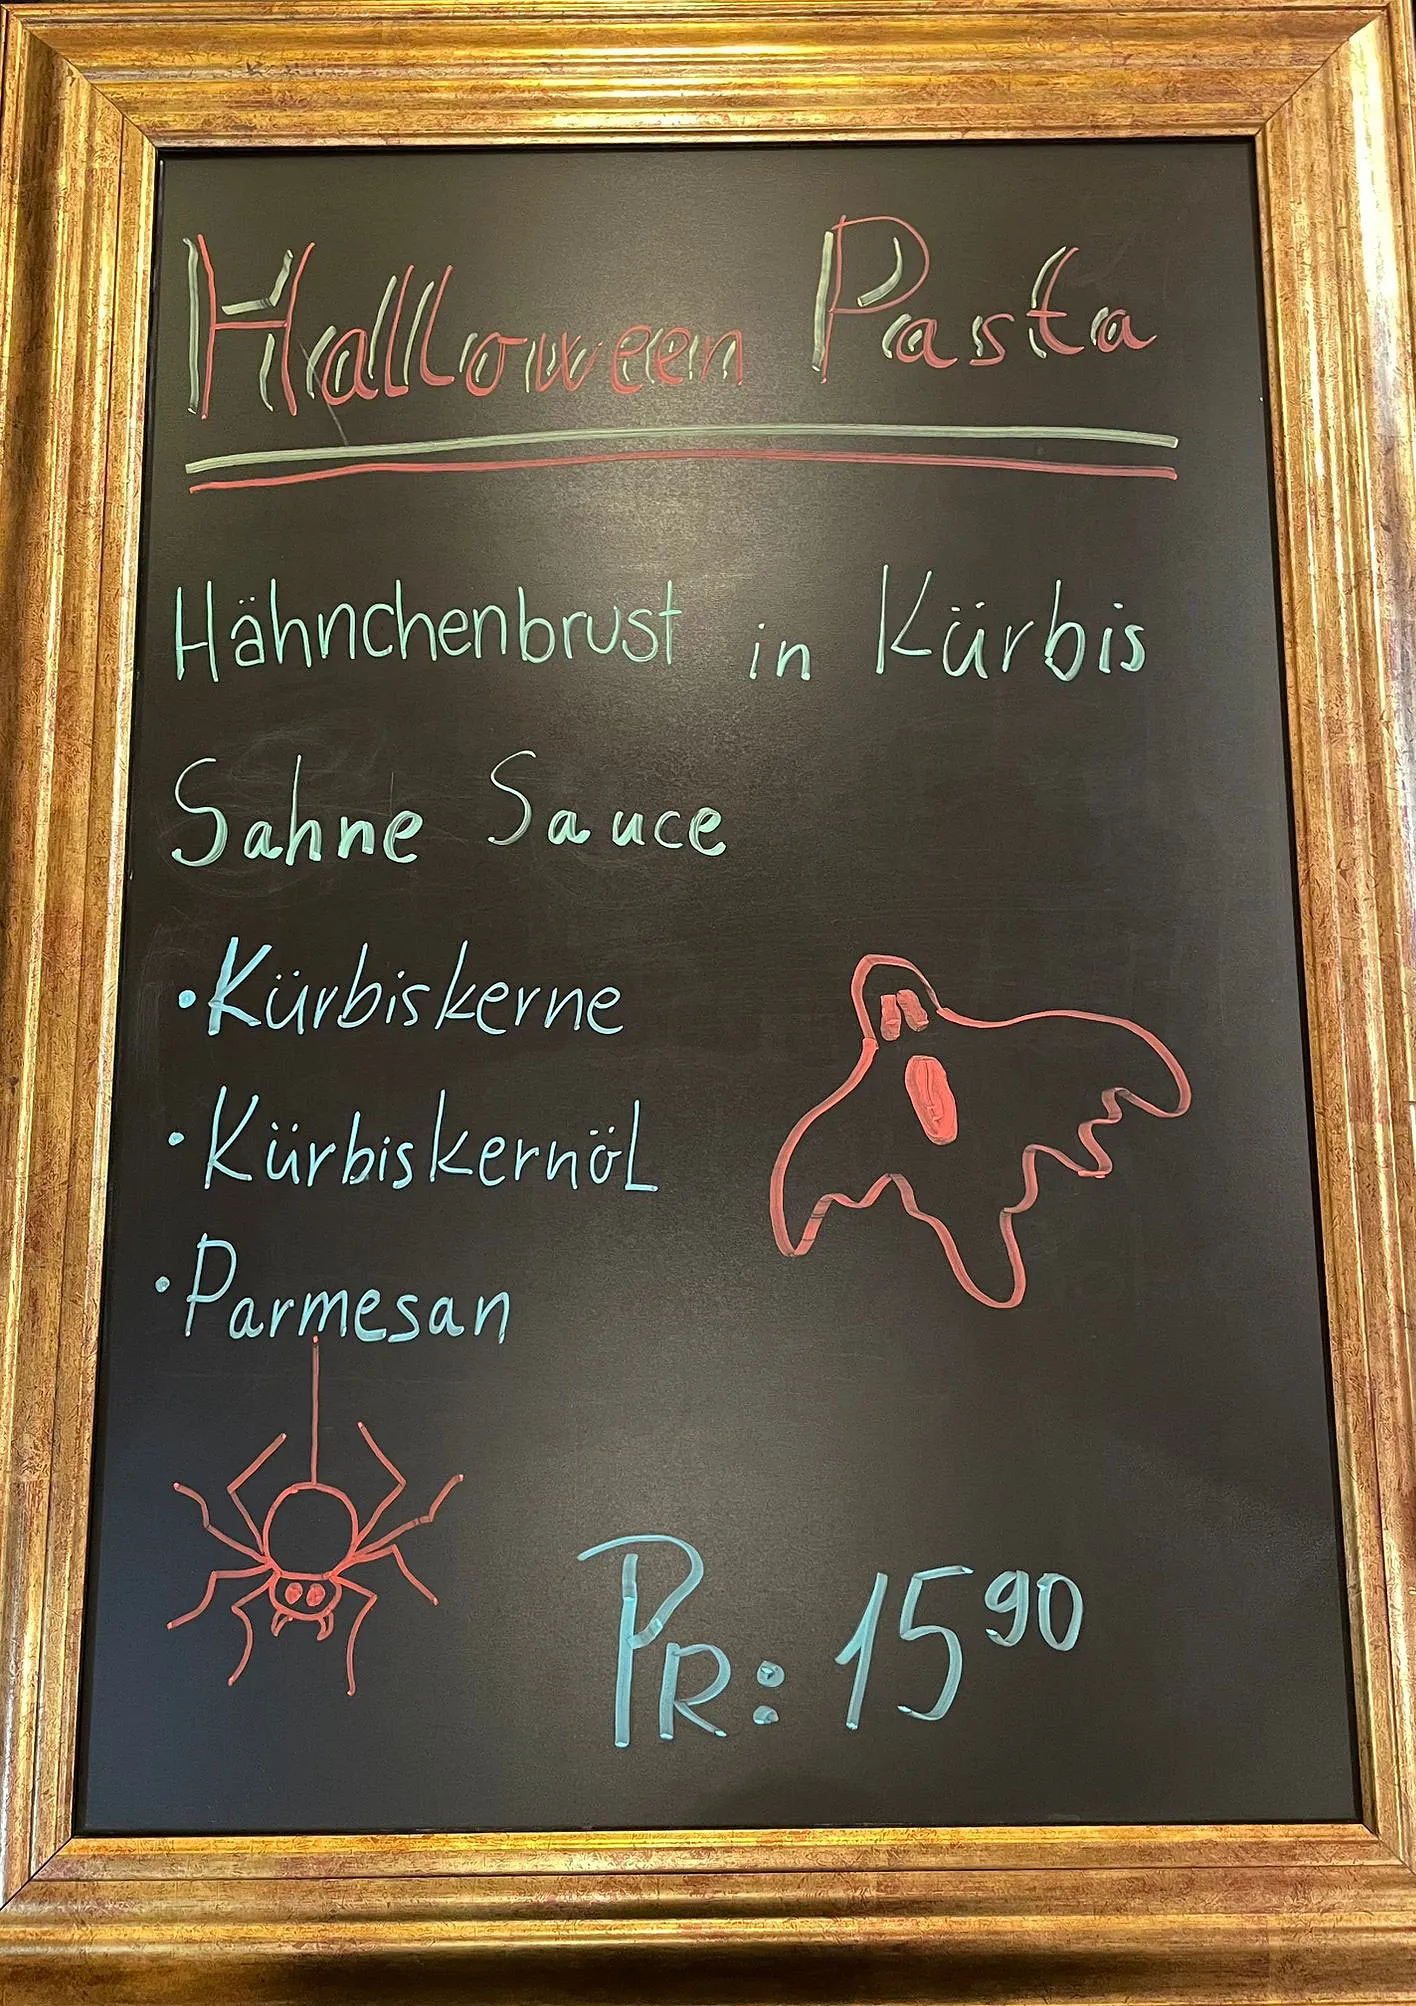 Halloween Pasta
Hähnchenbrust in Kürbis
Sahne Sauce
• Kürbiskerne
• Kürbiskernöl
• Parmesan
PR: 15 90